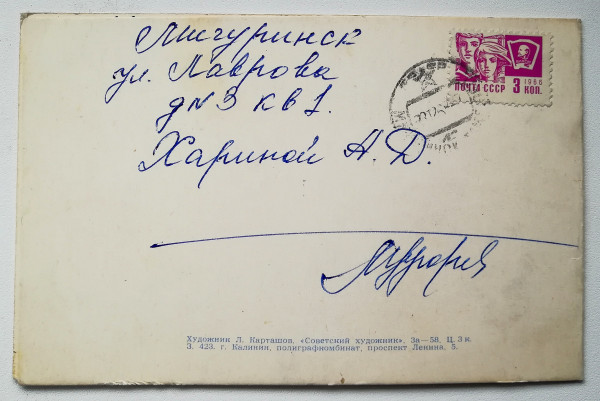 Мичуринск
ул. Лаврова
д№3 кв 1.
Хариной А. Д.
1966
ПОЧТА СССР 3 КОП.
Художник Л. Карташов. «Советский художник». Зв—58. Ц. 3 к.
З. 423. г. Калинин, полиграфкомбинат, проспект Ленина, 5.